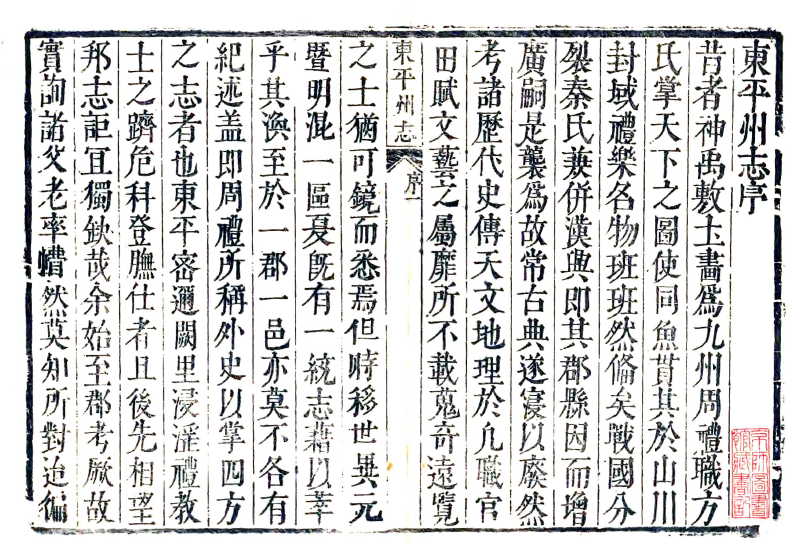 東平州志序
昔者神禹敷土畫為九州周禮職方
氏掌天下之圖使同魚貫其於山川
封域禮樂名物班班然備矣戰國分
裂秦氏兼併漢興即其郡縣因而增
廣嗣是襲為故常古典遂寢以廢然
考諸歷代史傳天文地理於凡職官
田賦文藝之屬靡所不載蒐奇遠覽
東平州志 序 一
之士猶可鏡而悉焉但時移世異元
暨明混一區夏既有一統志藉以萃
乎其渙至於一郡一邑亦莫不各有
紀述盖即周禮所稱外史以掌四方
之志者也東平密邇闕里浸淫禮教
士之躋危科登膴仕者且後先相望
邦志詎宜獨欽哉余始至郡考厥故
實詢諸父老率懵然莫知所對迨徧